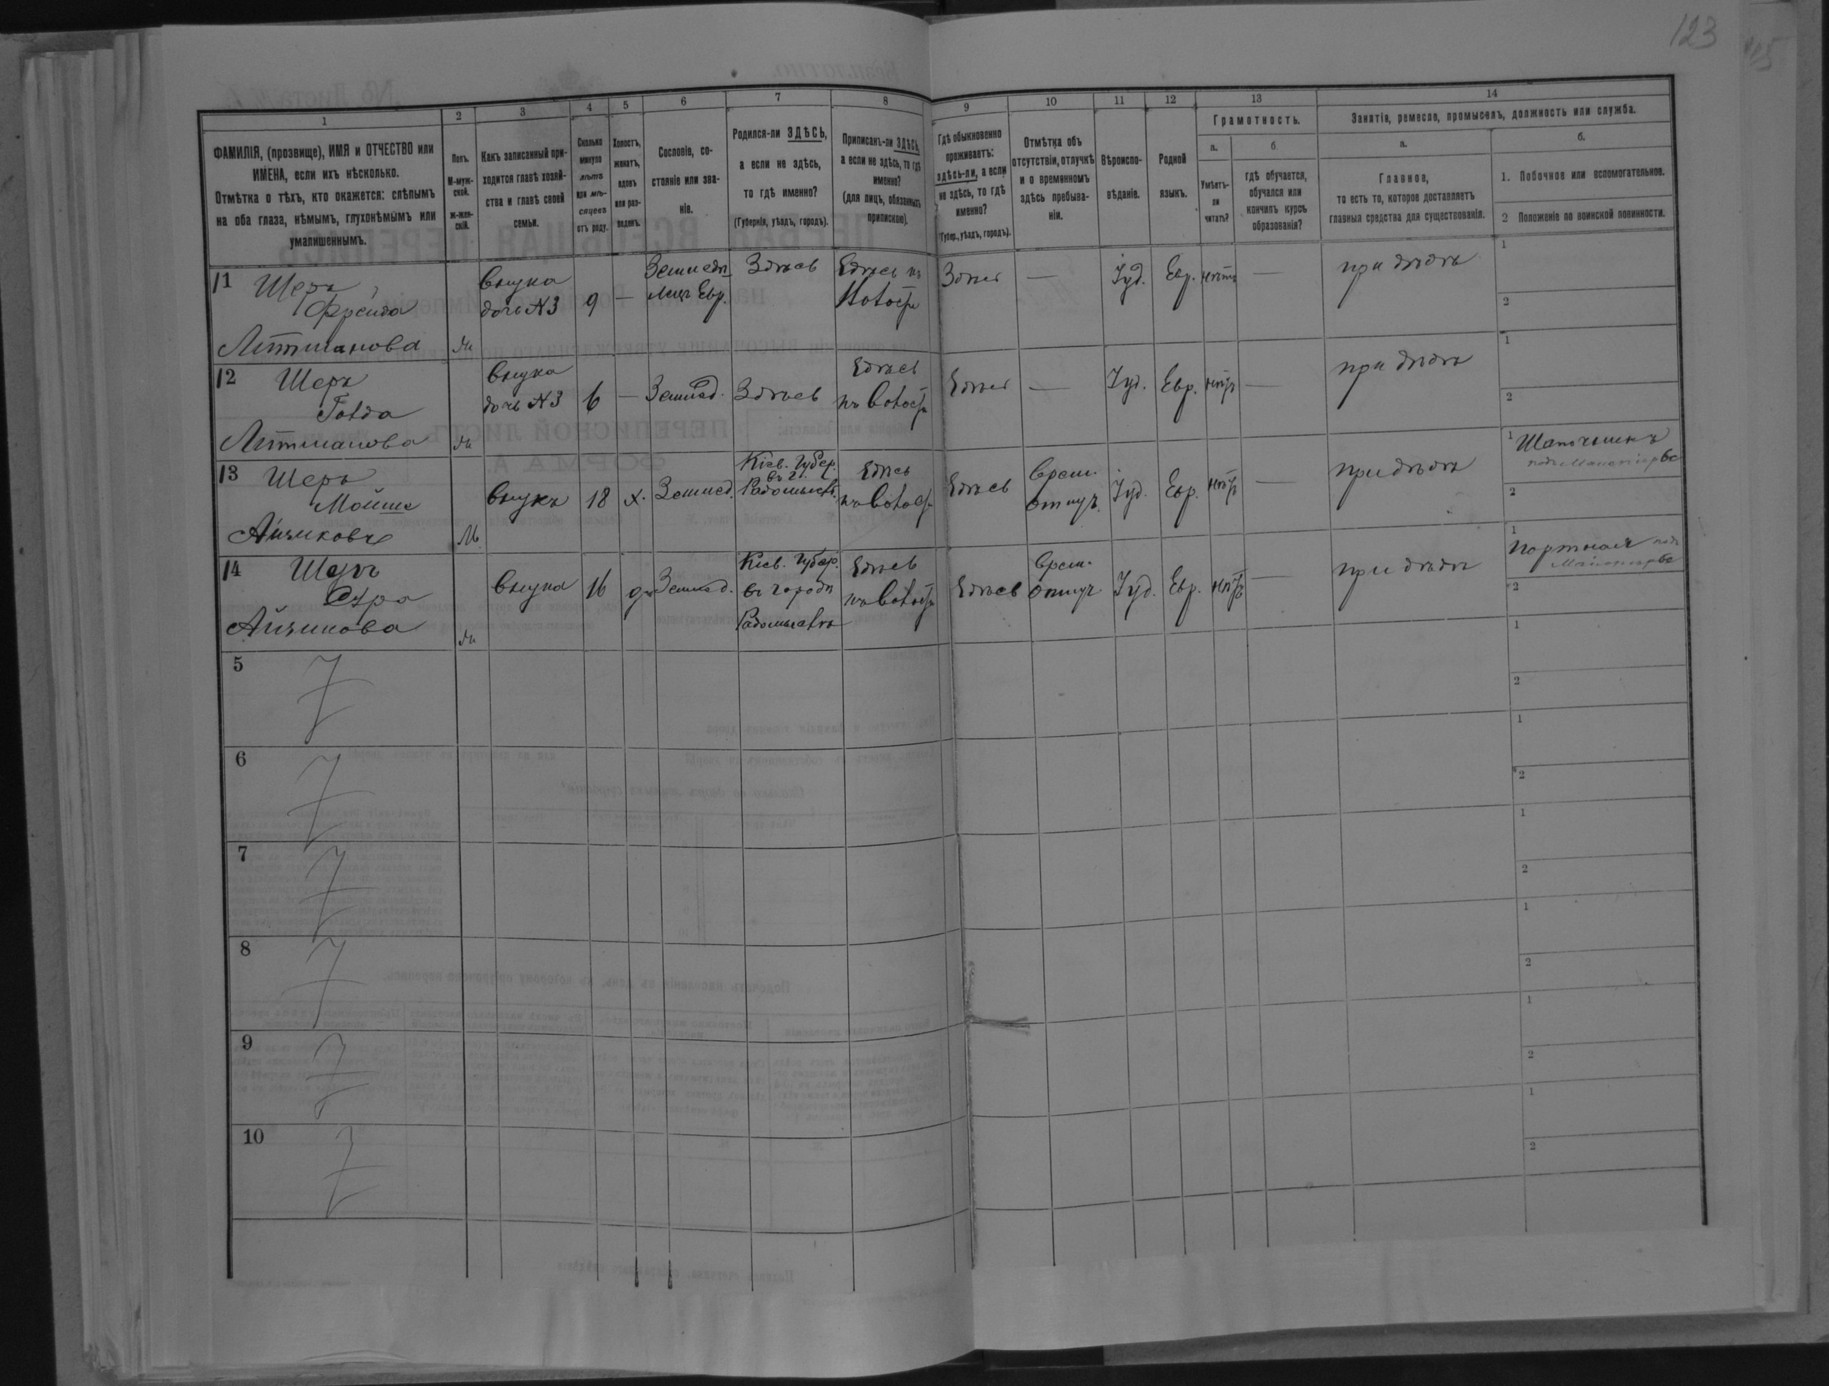 123
1 2 3 4 5 6 7 8 9 10 11 12 13 14
ФАМИЛІЯ, (прозвище), ИМЯ и ОТЧЕСТВО или
ИМЕНА, если ихъ нѣсколько.
Отмѣтка о тѣхъ, кто окажется: слѣпымъ
на оба глаза, нѣмымъ, глухонѣмымъ или
умалишеннымъ.
Полъ.
М-муж-
ской.
ж-жен-
скій.
Какъ записанный при-
ходится главѣ хозяй-
ства и главѣ своей
семьи.
Сколько
минуло
лѣтъ
или мѣ-
сяцевъ
отъ роду.
Холостъ,
женатъ,
вдовъ
или раз-
веденъ.
Сословіе, со-
стояніе или зва-
ніе.
Родился-ли ЗДѢСЬ,
а если не здѣсь,
то гдѣ именно?
(Губернія, уѣздъ, городъ).
Приписанъ-ли ЗДѢСЬ,
а если не здѣсь, то гдѣ
именно?
(для лицъ, обязанныхъ
припискою).
Гдѣ обыкновенно
проживаетъ:
здѣсь-ли, а если
не здѣсь, то гдѣ
именно?
(Губер., уѣздъ, городъ).
Отмѣтка объ
отсутствіи, отлучкѣ
и о временномъ
здѣсь пребыва-
ніи.
Вѣроиспо-
вѣданіе.
Родной
языкъ.
Грамотность.
а.
Умѣетъ-
ли
читать?
б.
гдѣ обучается,
обучался или
кончилъ курсъ
образованія?
Занятія, ремесло, промыселъ, должность или служба.
а.
Главное,
то есть то, которое доставляетъ
главныя средства для существованія.
б.
1. Побочное или вспомогательное.
2 Положеніе по воинской повинности.
11 Шеръ
Фрейда
Литманова
внука
дочь №3
9 — Здѣсь — Іуд. Евр. нѣтъ — при дѣдѣ
1
2
12 Шеръ
Голда
Литманова
внука
дочь №3
6 — Землед. Здѣсь — Іуд. Евр. нѣтъ — при дѣдѣ
1
2
13 Шеръ
Мойше
Айзиковъ
М
внукъ 18 х. Землед.
Кіев. Губер.
Врем.
отлуч.
Іуд. Евр. нѣтъ при дѣдѣ
1
2
14 Шеръ
Сура
Айзикова
внука 16
Кіев. Губер.
въ городѣ
Радомыслѣ
Врем.
отлуч
Іуд. Евр. нѣтъ — при дѣдѣ
1
2
5 1
2
6 1
2
7 1
2
8 1
2
9 1
2
10 1
2